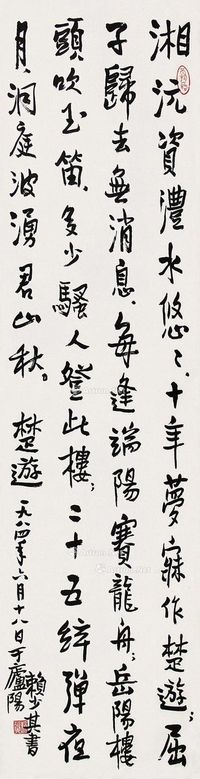 湘沅資澧水悠悠、十年夢寐作楚遊；屈
子歸去無消息、每逢端陽賽龍舟；岳陽樓
頭吹玉笛、多少騷人登此樓；二十五絃彈夜
月、洞庭波湧君山秋。 楚遊
一九八四年六月十八日于廬陽
賴少其書